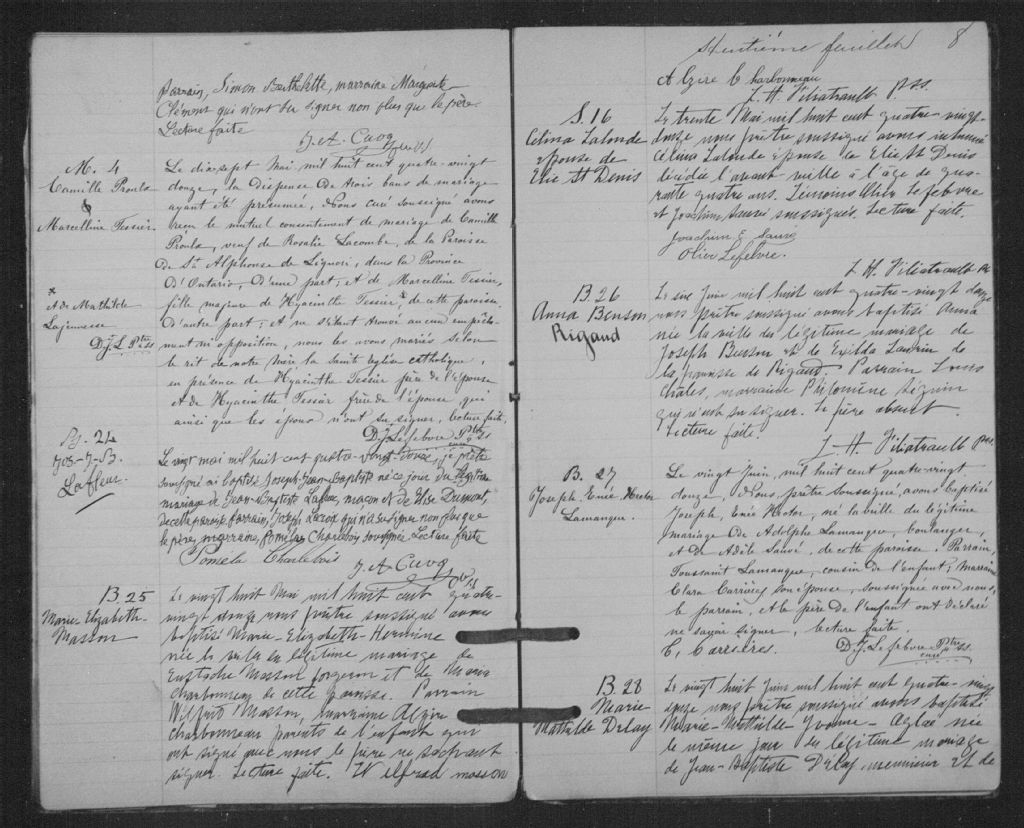 Parrain, Simon Berthelotte, marraine Marguerite
Clément qui n'ont su signer non plus que le père.
Lecture faite
J. A. Cuoq
ptre SS
M. 4
Camille Proulx
&
Marcelline Tessier.
Le dix-sept Mai mil huit cent quatre-vingt
donze, la dispense de trois bans de mariage
ayant été présumée, Nous curé soussigné avons
reçu le mutuel consentement de mariage de Camille
Proulx, veuf de Rosalie Lacombe, de la Paroisse
de St Alphonse de Liguori, dans la Province
d'Ontario, d'une part; et de Marcelline Tessier,
fille majeure de Hyacinthe Tessier x de cette paroisse,
d'autre part: et ne s'étant trouvé aucun empêche-
ment ni opposition, nous les avons mariés selon
le rit de notre Mère la Sainte Eglise catholique,
en présence de Hyacinthe Tessier père de l'épouse
et de Hyacinthe Tessier frère de l'épouse, qui
ainsi que les époux n'ont su signer, lecture faite.
D. J. Lefebvre Ptre SS
curé
x
et de Mathilde
Lajeunesse
D. J. L. Ptre SS
B. 24
Jos-J-B.
Lafleur.
Le vingt mai mil huit cent quatre-vingt-douze, je prêtre
soussigné ai baptisé Joseph-Jean-Baptiste né ce jour du légitime
mariage de Jean-Baptiste Lafleur, maçon et de Elise Dumont,
de cette paroisse parrain, Joseph Lacroix qui n'a su signer non plus que
le père, marraine, Poméla Charlebois soussignée Lecture faite
Poméla Charlebois
J. A. Cuoq
ptre SS
B 25
Marie-Elizabeth-
Masson
Le vingt huit Mai mil huit cent quatre-
vingt donze nous prêtre soussigné avons
baptisé Marie-Elizabeth-Hermine
née la veille du légitime mariage de
Eustache Masson forgeron et de Marie
Charbonneau de cette paroisse. Parrain
Wilfrid Masson, marraine Alzire
Charbonneau parents de l'enfant qui
ont signé avec nous le père ne sachant
signer. Lecture faite. Wilfrad masson
Huitième feuillet 8
Alzire Charbonneau
L. H. Filiatrault pss.
S. 16
Célina Lalonde
épouse de
Elie St Denis
Le trente Mai mil huit cent quatre-vingt-
donze nous prêtre soussigné avons inhumé
Célina Lalonde épouse de Elie St Denis
décédée l'avant veille à l'âge de qua-
rante quatre ans. Témoins Olier Lefebvre
et Joachim Sauvé soussignés. Lecture faite.
Joachim E Sauve
Olier Lefebvre.
L. H. Filiatrault Pss
B. 26
Anna Benson
Rigaud
Le six Juin mil huit cent quatre-vingt donze
nous prêtre soussigné avons baptisé Anna
née la veille du légitime mariage de
Joseph Busson et de Exilda Laurin de
la paroisse de Rigaud. Parrain Louis
Châles, marraine Philomène Séguin
qui n'ont su signer. Le père absent.
Lecture faite.
L. H. Filiatrault pss.
B. 27
Joseph Enée Hector
Lamangue.
Le vingt Juin, mil huit cent quatre-vingt
donze, Nous prêtre soussigné, avons baptisé
Joseph, Enée Hector, né la veille du légitime
mariage de Adolphe Lamangue, boulanger,
et de Adèle Sauvé, de cette paroisse. Parrain,
Toussaint Lamangue, cousin de l'enfant; Marraine
Clara Carrières son épouse, soussignée avec nous,
le parrain, et le père de l'enfant ont déclaré
ne savoir signer, lecture faite.
C. Carrières. D. J. Lefebvre Ptre SS.
curé
B. 28
Marie
Mathilde Delay
Le vingt huit Juin mil huit cent quatre-vingt
donze nous prêtre soussigné avons baptisé
Marie-Mathilde Yvonne-Aglaé née
le même jour du légitime mariage
de Jean-Baptiste Delay menuisier et de